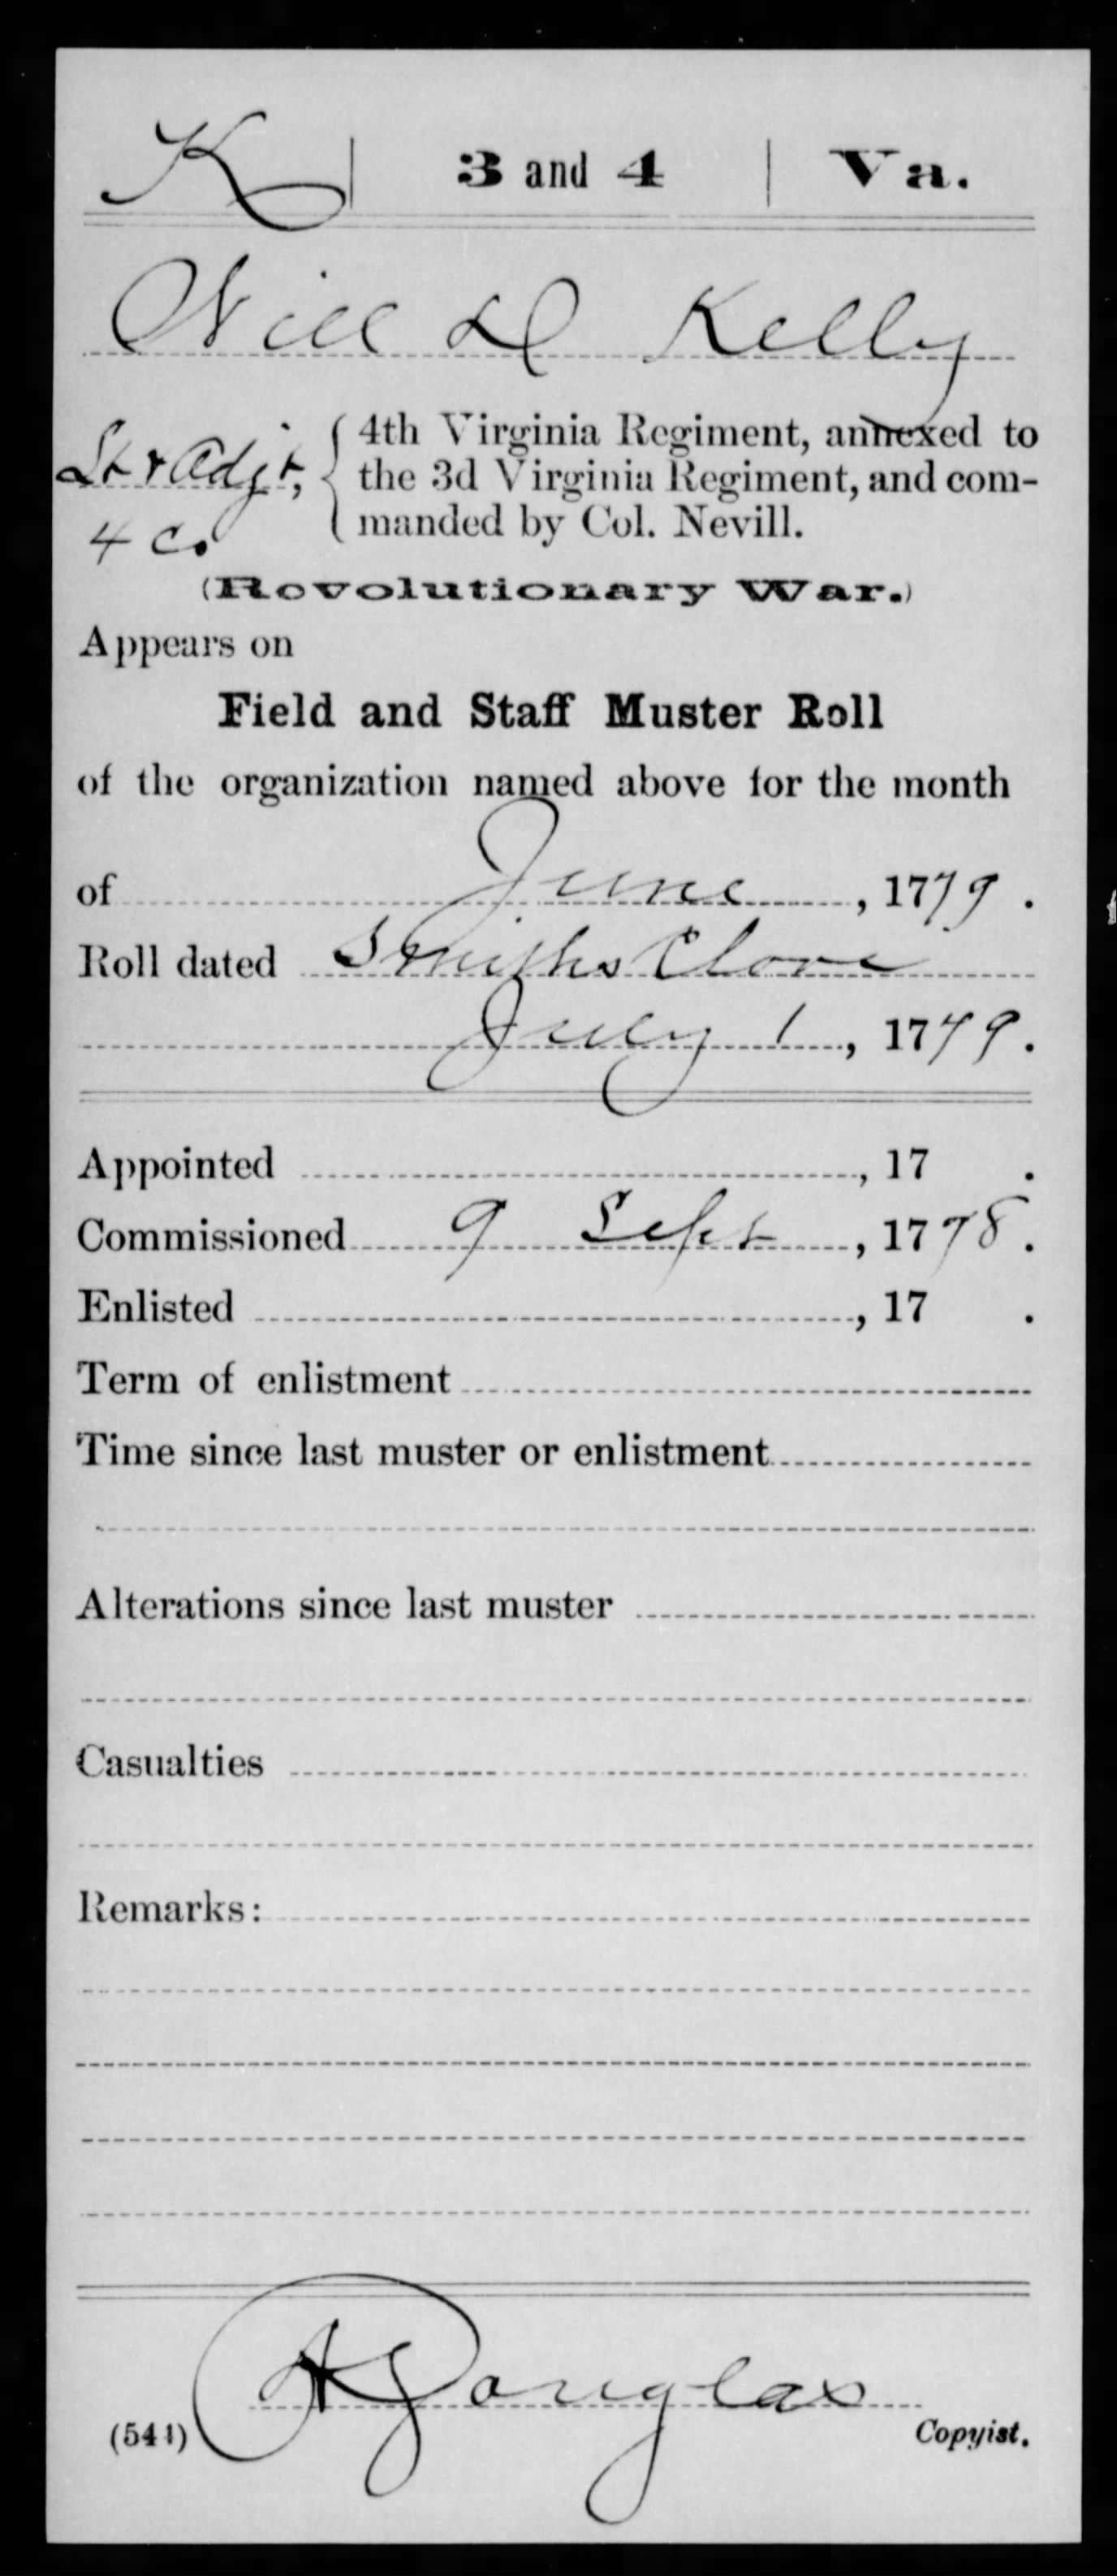 K | 3 and 4 | Va.
Will D Kelly
Lt & Adjt,
4 Co.
4th Virginia Regiment, annexed to
the 3d Virginia Regiment, and com-
manded by Col. Nevill.
(Revolutionary War.)
Appears on
Field and Staff Muster Roll
of the organization named above for the month
of June, 1779.
Roll dated Smiths Clove
July 1, 1779.
Appointed , 17 .
Commissioned 9 Sept, 1778.
Enlisted , 17 .
Term of enlistment
Time since last muster or enlistment
Alterations since last muster
Casualties
Remarks:
Douglas
(541) Copyist.